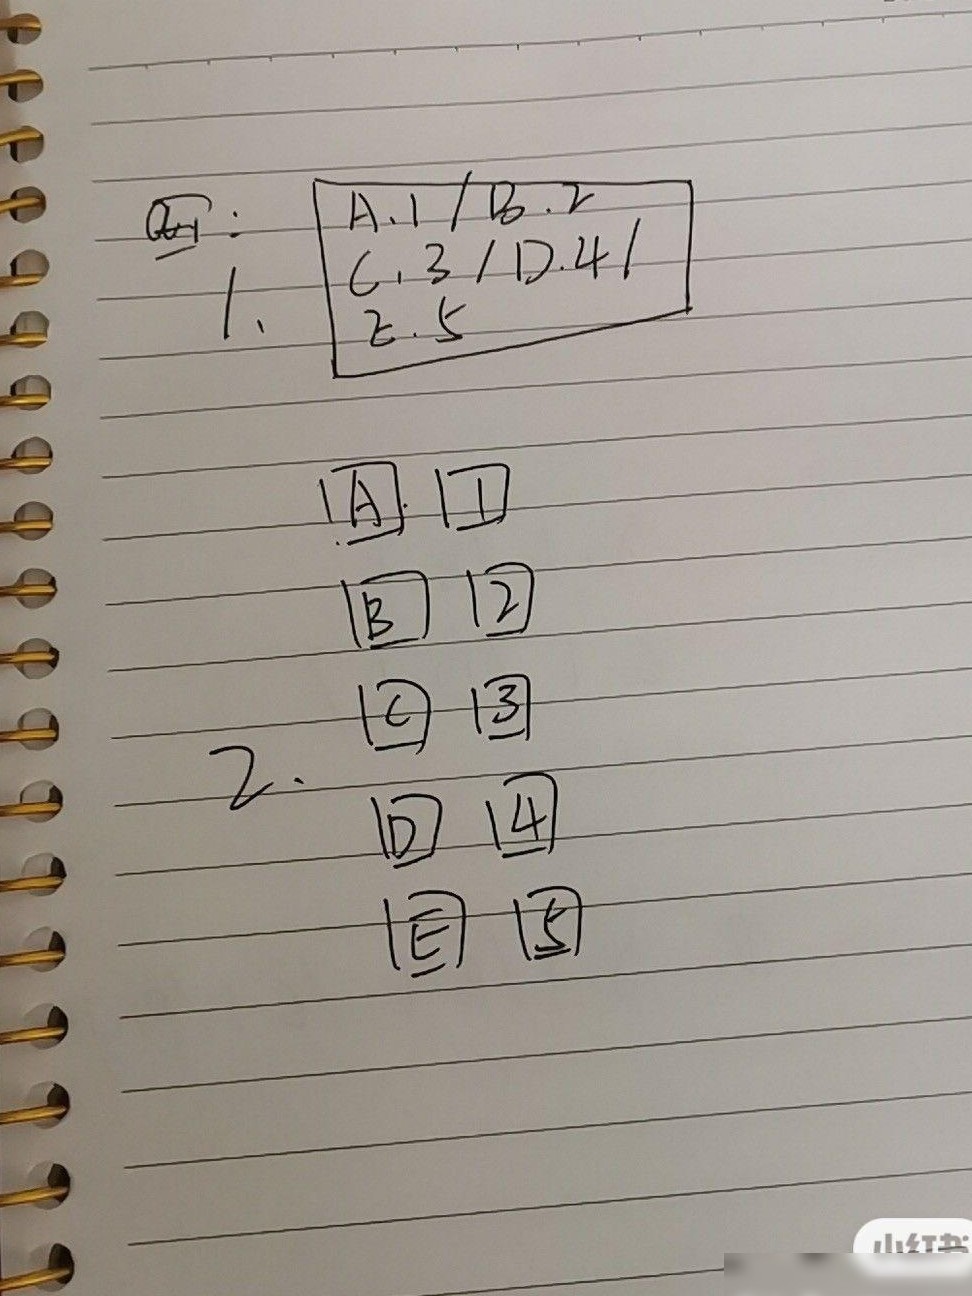 A.1 / B.2
C.3 / D.4 /
E.5
1.
A 1
B 2
C 3
2.
D 4
E 5
小红书